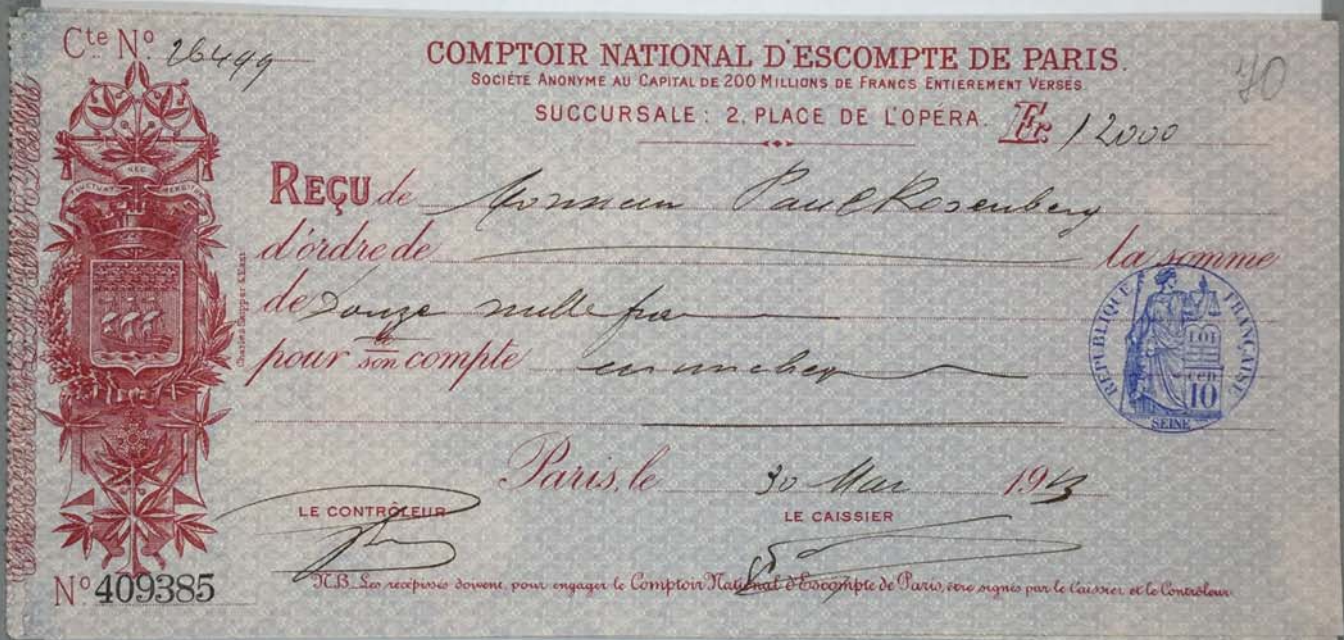 Cte No 26499
COMPTOIR NATIONAL D'ESCOMPTE DE PARIS.
SOCIÉTÉ ANONYME AU CAPITAL DE 200 MILLIONS DE FRANCS ENTIÈREMENT VERSÉS
70
SUCCURSALE: 2, PLACE DE L'OPÉRA. Fr. 12000
FLUCTUAT NEC MERGITUR
REÇU de Monsieur Paul Rosenberg
d'ordre de la somme
de Douze mille frs
pour son compte en un cheq
RÉPUBLIQUE FRANÇAISE
LOI
CEN
10
SEINE
Paris, le 30 Mai 1913
LE CONTRÔLEUR LE CAISSIER
No 409385
N.B. Les récépissés doivent, pour engager le Comptoir National d'Escompte de Paris, être signés par le Caissier et le Contrôleur.